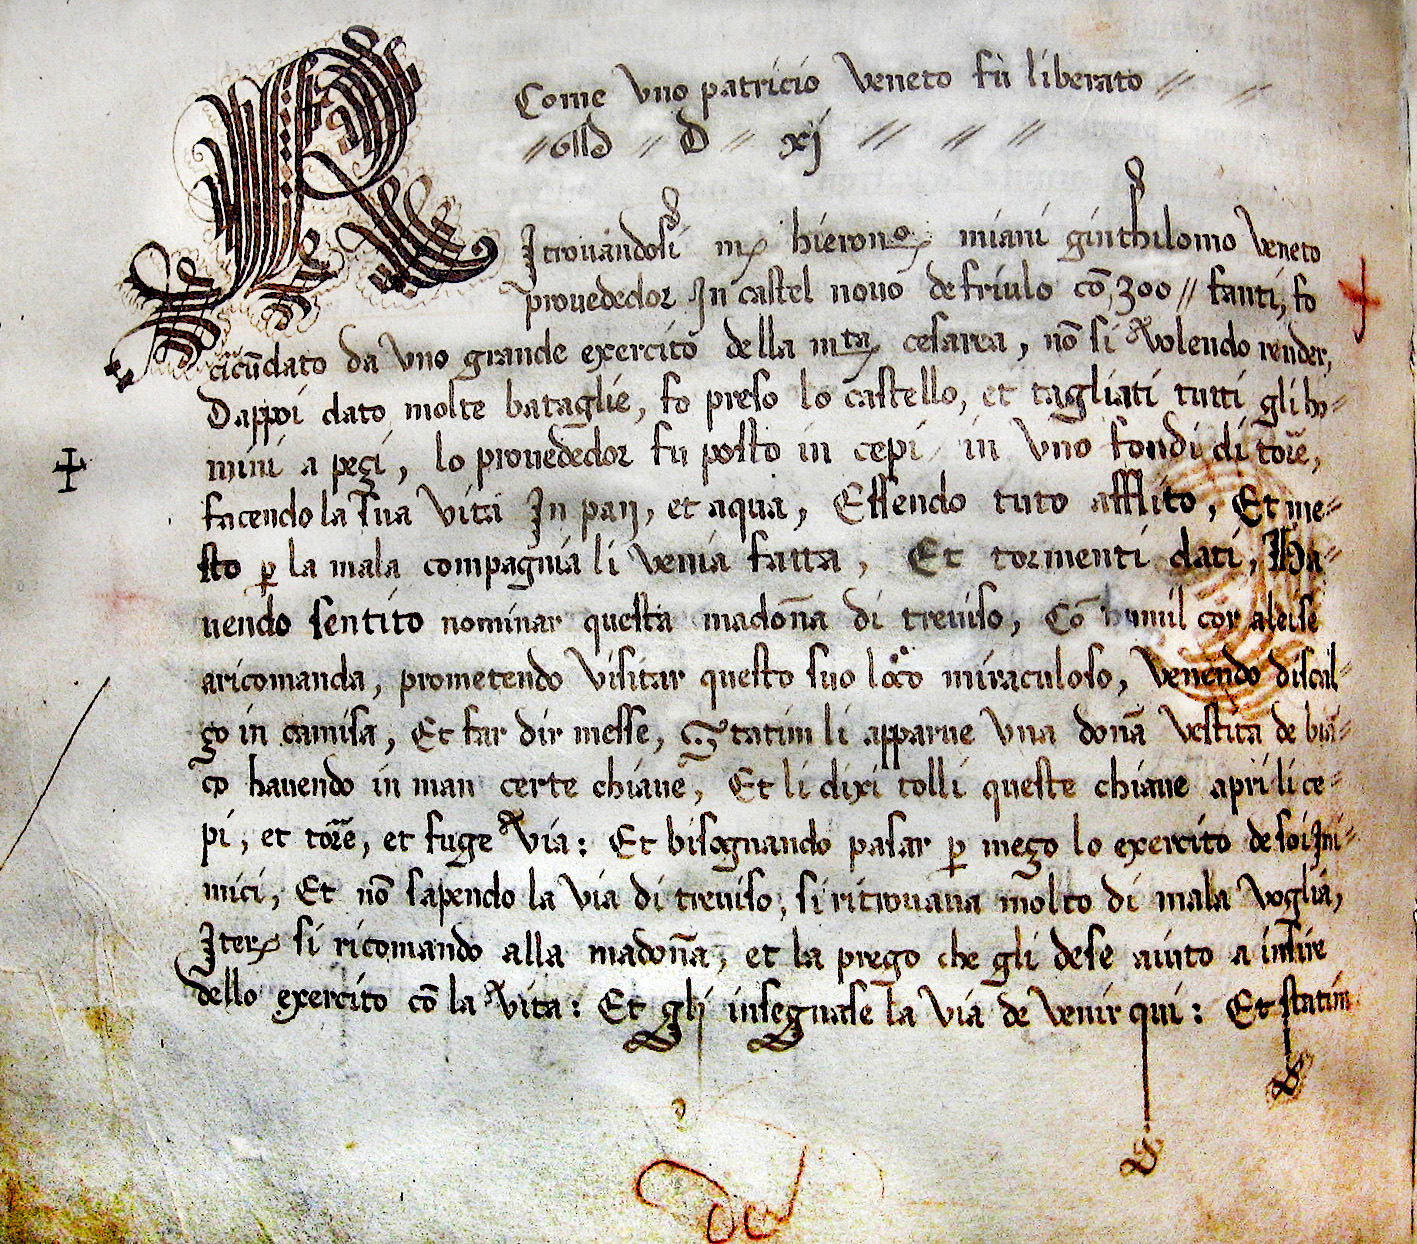 Come uno patricio veneto fù liberato //  //
// M // D // xj // // //
Ritrovandosi m. hieronº miani ginthilomo veneto
provededor In castel novo de friulo cō 300 // fanti, fo
circūdato da uno grande exercito della mta cesarea, nō si volendo render,
Dappoi dato molte bataglie, fo preso lo castello, et tagliati tutti gli ho-
mini a pezi, lo provededor fu posto in cepi in uno fondi di torre,
facendo la sua vita In pan, et aqua, Essendo tuto afflito, Et me-
sto ꝑ la mala compagnia li venia fatta, Et tormenti dati, Ha-
vendo sentito nominar questa madoña di treviso, Cō humil cor aleise
aricomanda, prometendo visitar questo suo loco miraculoso, venendo discal-
zo in camisa, Et far dir messe, Statim li apparve una donā vestita de biā-
co havendo in man certe chiave, Et li dixi tolli queste chiave apri li ce-
pi, et torre, et fuge via: Et bisognando pasar ꝑ mezo lo exercito de soi Ini-
mici, Et nō sapendo la via di treviso, si ritrovava molto di mala voglia,
Iter. si ricomando alla madoña, et la prego che gli dese aiuto a insire
dello exercito cō la vita: Et gli insegnase la via de venir qui: Et statim